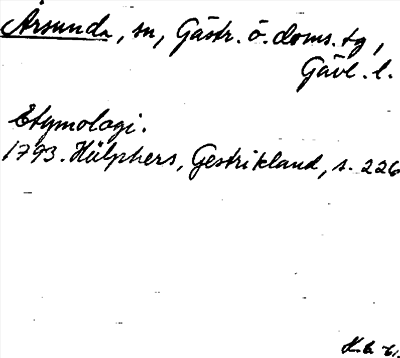 Årsunda, sn, Gästr. ö. doms. tg,
Gävl. l.
Etymologi.
1793. Hülphers, Gestrikland, s. 226